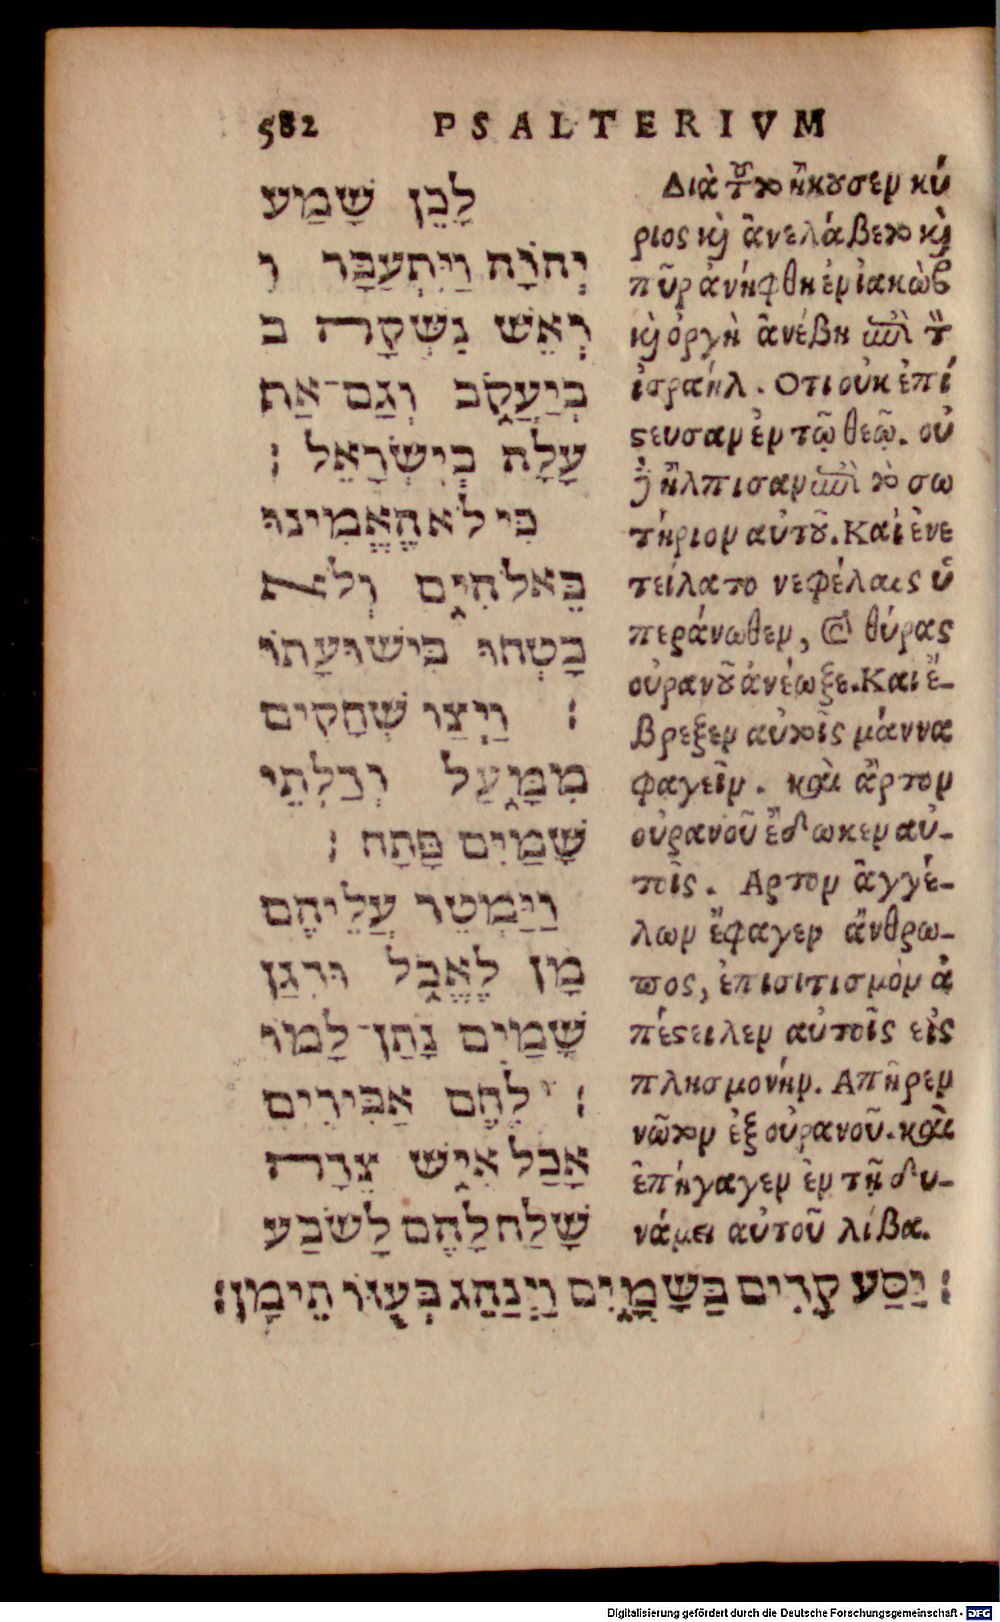 582 PSALTERIVM
לָכֵן שָׁמַע
יְהוָֹה וַיִּתְעַבָּר ו
וְאֵשׁ נִשְּׂקָה ב
בְיַעֲקֹב וְגַם־אַף
עָלָה בְיִשְׂרָאֵל ׃
כִּי לֹא הֶאֱמִינוּ
בֵּאלֹהִים וְלֹא
בָטְחוּ בִּישׁוּעָתוֹ
׃ וַיְצַו שְׁחָקִים
מִמָּעַל וְדַלְתֵי
שָׁמַיִם פָּתָח ׃
וַיַּמְטֵר עֲלֵיהֶם
מָן לֶאֱכֹל וּדְגַן
שָׁמַיִם נָתַן־לָמוֹ
׃ לֶחֶם אַבִּירִים
אָכַל אִישׁ צֵדָה
שָׁלַח לָהֶם לָשֹׂבַע
׃ יַסַּע קָדִים בַּשָּׁמָיִם וַיְנַהֵג בְּעֻוּזוֹ תֵימָן׃
Διὰ τοῦτο ἤκουσεν κύ
ριος καὶ ἀνελάβετο καὶ
πῦρ ἀνήφθη ἐν ἰακὼβ
καὶ ὀργὴ ἀνέβη ἐπὶ τὸν
ἰσραήλ. Οτι οὐκ ἐπί
ϛευσαν ἐν τῷ θεῷ. οὐ
δὲ ἤλπισαν ἐπὶ τὸ σω
τήριον αὐτοῦ. Καὶ ἐνε
τείλατο νεφέλαις ὑ
περάνωθεν, καὶ θύρας
οὐρανοῦ ἀνέωξε. Και ἔ-
βρεξεν αὐτοῖς μάννα
φαγεῖν. καὶ ἄρτον
οὐρανοῦ ἔδωκεν αὐ-
τοῖς. Αρτον ἀγγέ-
λων ἔφαγεν ἄνθρω-
πος, ἐπισιτισμὸν ἀ
πέϛειλεν αὐτοῖς εἰς
πλησμονήν. Απῆρεν
νῶτον ἐξ οὐρανοῦ. καὶ
ἐπήγαγεν ἐν τῇ δυ-
νάμει αὐτοῦ λίβα.
Digitalisierung gefördert durch die Deutsche Forschungsgemeinschaft - DFG